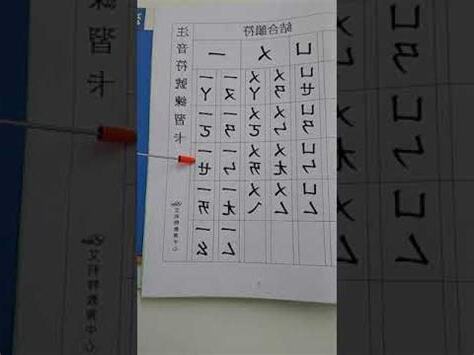 注音符號練習卡
結合韻符
ㄧ ㄨ ㄩ
ㄧㄚ ㄧㄛ ㄧㄝ ㄧㄞ ㄧㄠ
ㄧㄡ ㄧㄢ ㄧㄣ ㄧㄤ ㄧㄥ
ㄨㄚ ㄨㄛ ㄨㄞ ㄨㄟ
ㄨㄢ ㄨㄣ ㄨㄤ ㄨㄥ
ㄩㄝ ㄩㄢ ㄩㄣ ㄩㄥ